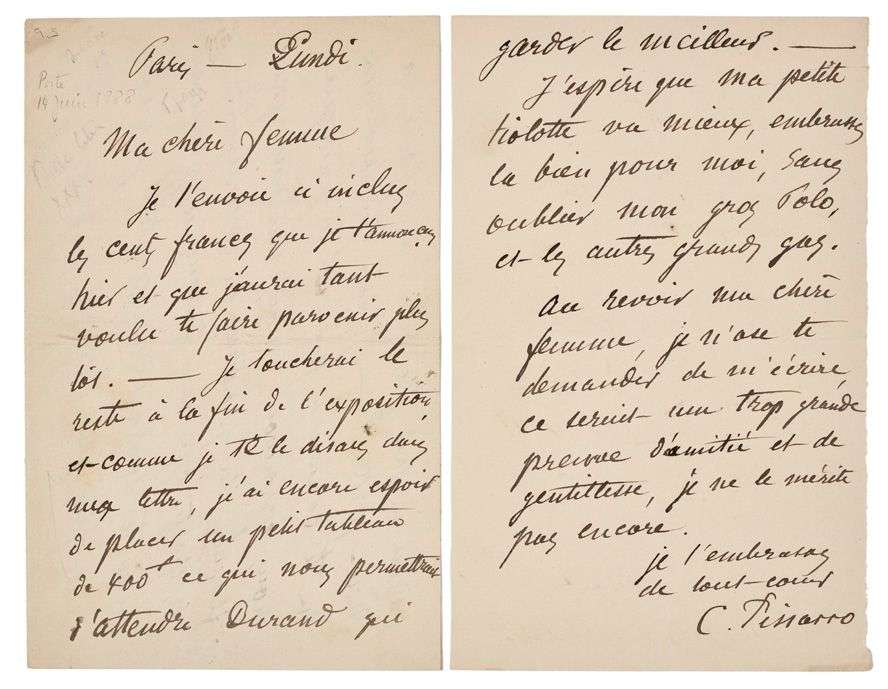 9.5
Porte
14 Juin 1888
Paris — Lundi.
Ma chère femme
Je t'envoie ci inclus
les cents francs que je t'annonçais
hier et que j'aurai tant
voulu te faire parvenir plus
tôt. — Je toucherai le
reste à la fin de l'exposition
et comme je te le disais dans
ma lettre, j'ai encore espoir
de placer un petit tableau
de 400f ce qui nous permettrait
d'attendre Durand qui
garder le meilleur. —
J'espère que ma petite
va mieux, embrasses
la bien pour moi, sans
oublier mon gros Polo,
et les autres grands gas.
Au revoir ma chère
femme, je n'ose te
demander de m'écrire,
ce serait une trop grande
preuve d'amitié et de
gentillesse, je ne le mérite
pas encore.
je t'embrasse
de tout cœur
C. Pissarro